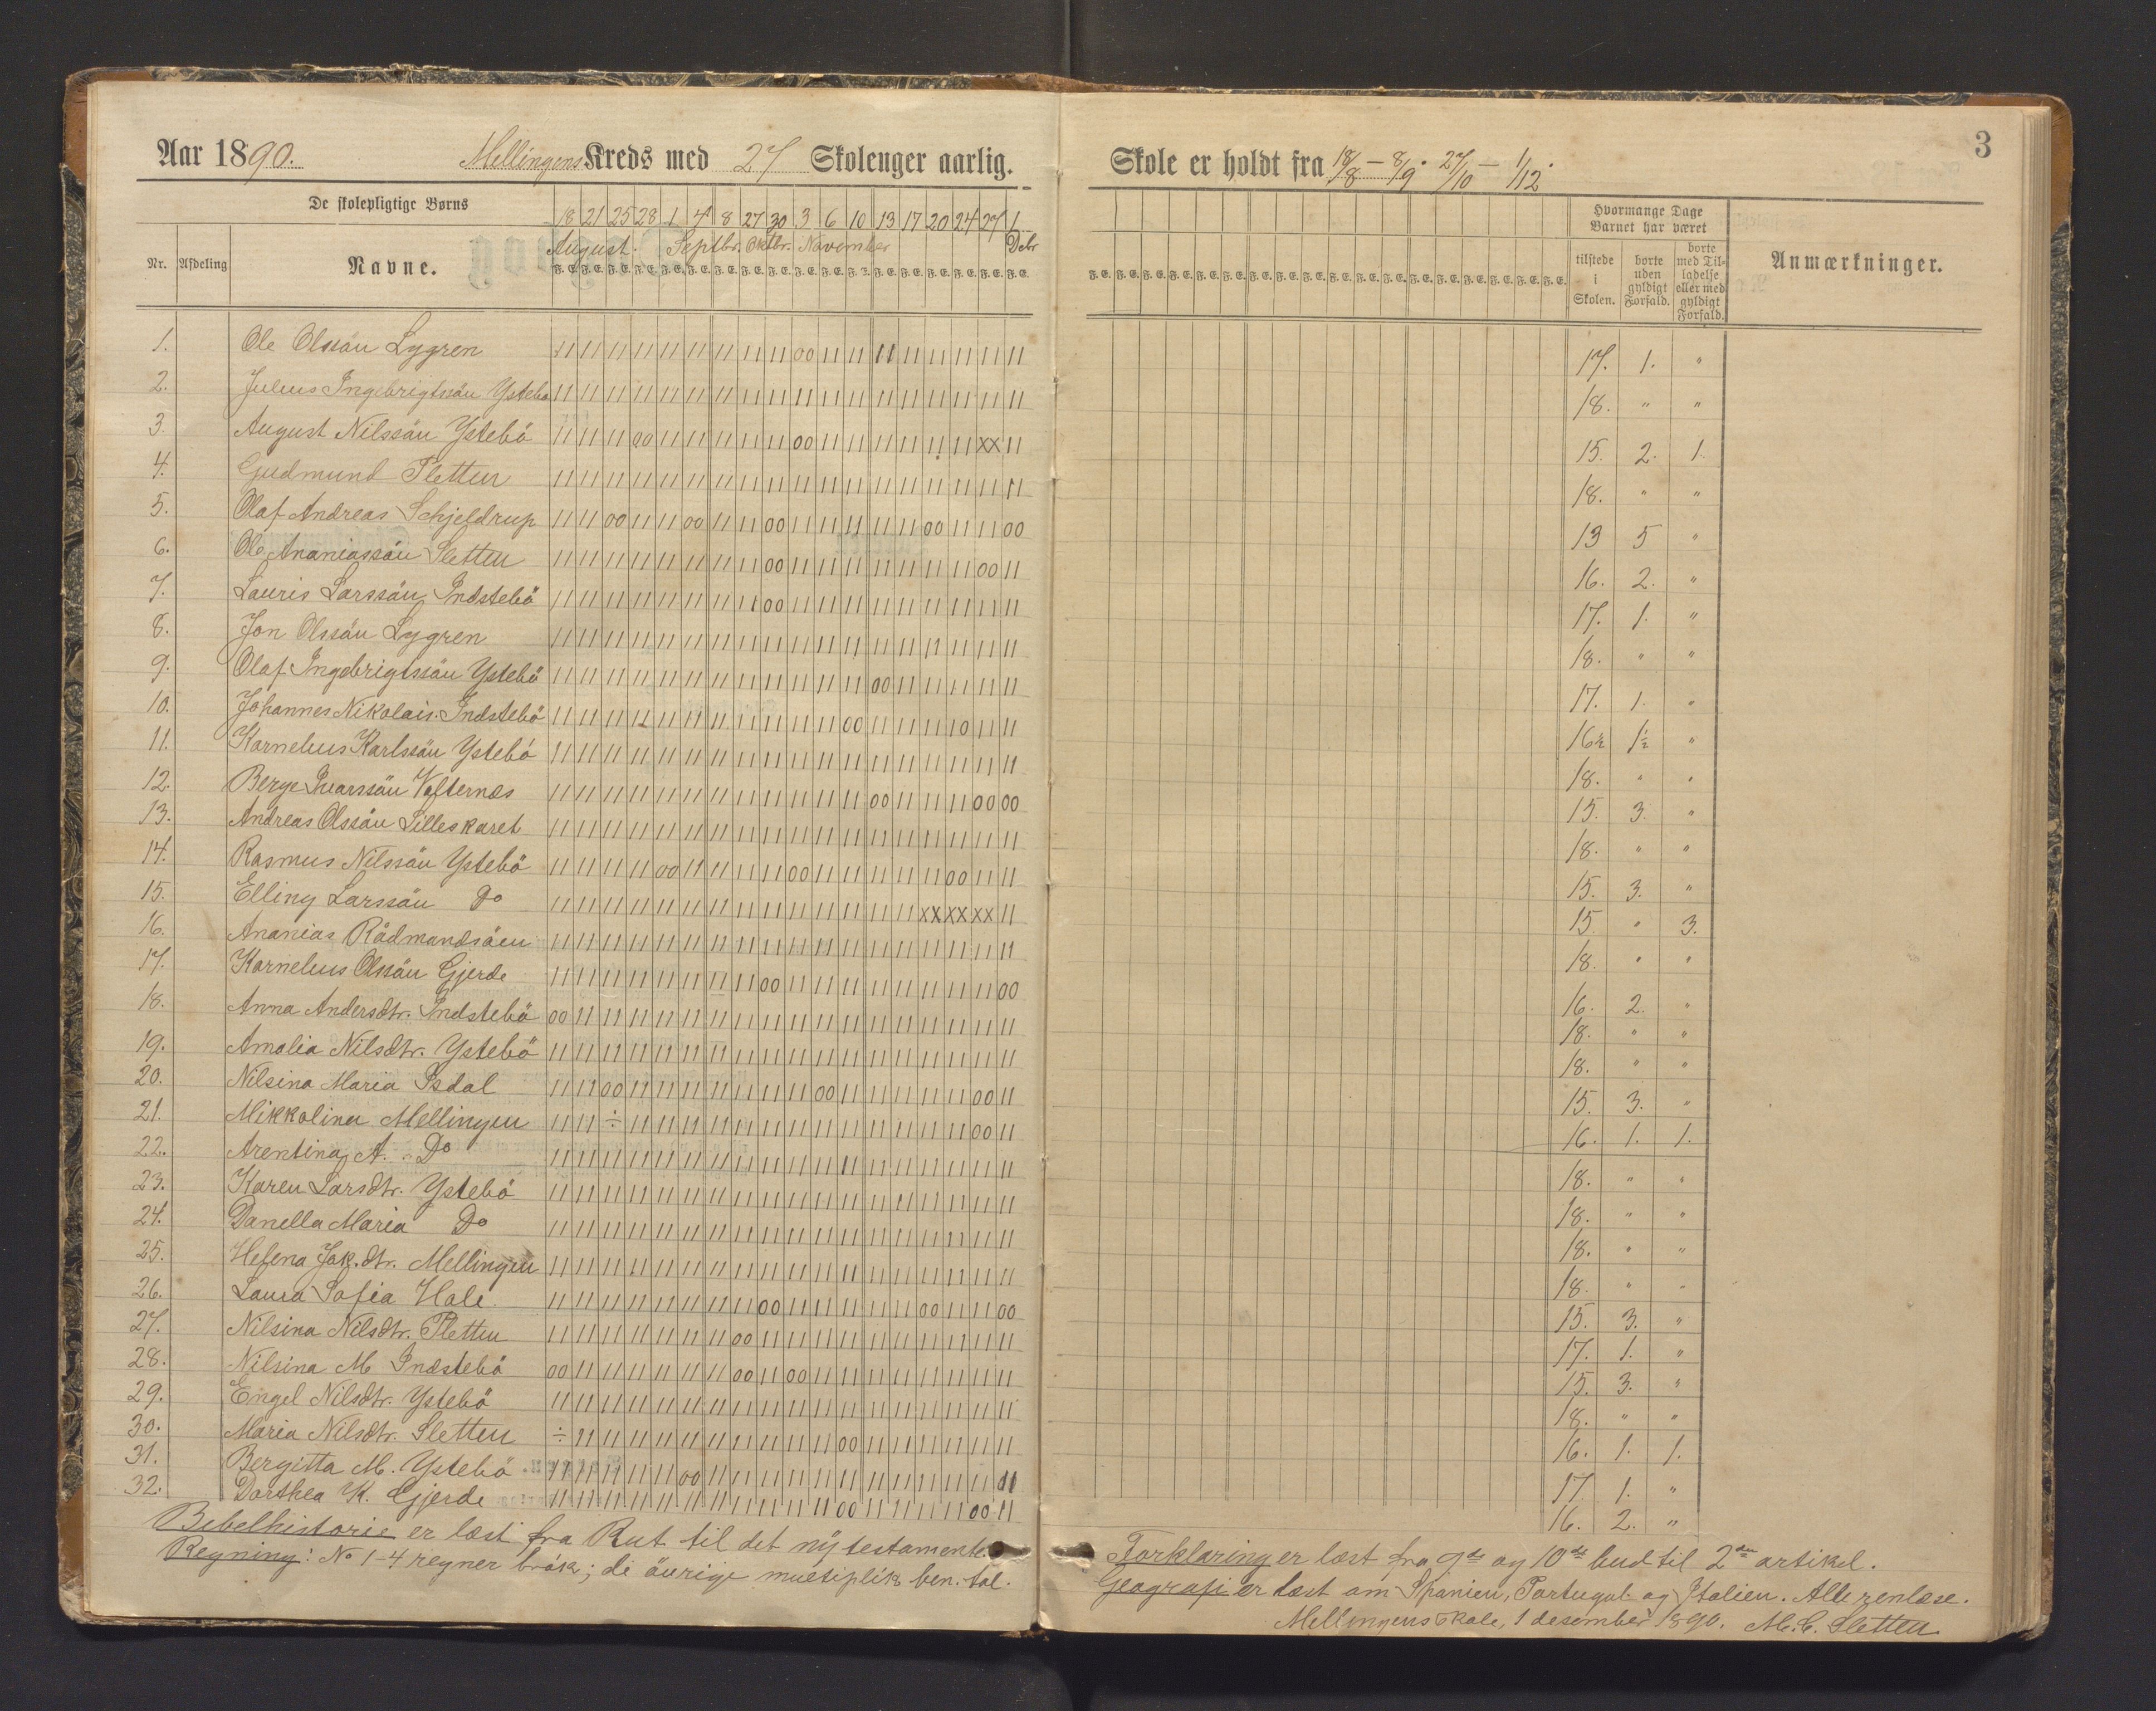 Aar 1890. Mellingens Kreds med 27 Skolenger aarlig.
De skolepligtige Børns
18 21 25 28 1 4 8 27 30 3 6 10 13 17 20 24 27 1
August. Septbr. Oktbr. November Debr
Nr. Afdeling Navne.
F. E. F. E. F. E. F. E. F. E. F. E. F. E. F. E. F. E. F. E. F. E. F. E. F. E. F. E. F. E. F. E. F. E. F. E.
1. Ole Olssön Lygren
2. Julius Ingebrigtsön Ystebö
3. August Nilssön Ystebö
4. Gudmund Sletten
5. Olaf Andreas Schjeldrup
6. Ole Ananiassön Sletten
7. Lauris Larssön Indstebö
8. Jon Olssön Lygren
9. Olaf Ingebrigtssön Ystebö
10. Johannes Nikolais. Indstebö
11. Kornelius Karlssön Ystebö
12. Berge Ivarssön Vafternes
13. Andreas Olssön Lilleskaret
14. Rasmus Nilssön Ystebö
15. Elling Larssön Do
16. Ananias Rådmandsöen
17. Kornelius Olssön Gjerde
18. Anna Andersdtr. Indstebö
19. Amalia Nilsdtr. Ystebö
20. Nilsina Maria Isdal
21. Mikkolina Mellingen
22. Arentina A. Do
23. Karen Larsdtr. Ystebö
24. Danella Maria Do
25. Helena Jak.dtr. Mellingen
26. Laura Sofia Hole.
27. Nilsina Nilsdtr. Sletten
28. Nilsina M. Indstebö
29. Engel Nilsdtr. Ystebö
30. Maria Nilsdtr. Sletten
31. Bergitta M. Ystebö
32. Dorthea K. Gjerde
Bibelhistorie er læst fra Rut til det ny testamente.
Regning: No 1-4 regner brøk; de øvrige multiplik. ben. tal.
3
Skole er holdt fra 18/8 – 8/9. 27/10 – 1/12.
Hvormange Dage Barnet har været
tilstede i Skolen. borte uden gyldigt Forfald. borte med Tilladelse eller med gyldigt Forfald.
Anmærkninger.
F. E. F. E. F. E. F. E. F. E. F. E. F. E. F. E. F. E. F. E. F. E. F. E. F. E. F. E. F. E. F. E. F. E. F. E.
17. 1. "
18. " "
15. 2. 1.
18. " "
13 5 "
16. 2. "
17. 1. "
18. " "
17. 1. "
16½ 1½ "
18. " "
15. 3. "
18. " "
15. 3. "
15. " 3.
18. " "
16. 2. "
18. " "
18. " "
15. 3. "
16. 1. 1.
18. " "
18. " "
18. " "
18. " "
15. 3. "
17. 1. "
15. 3. "
18. " "
16. 1. 1.
17. 1. "
16. 2. "
Forklaring er læst fra 9de og 10de bud til 2den artikel.
Geografi er læst om Spanien, Portugal og Italien. Alle renlæse.
Mellingens skole, 1 desember 1890. M. C. Sletten